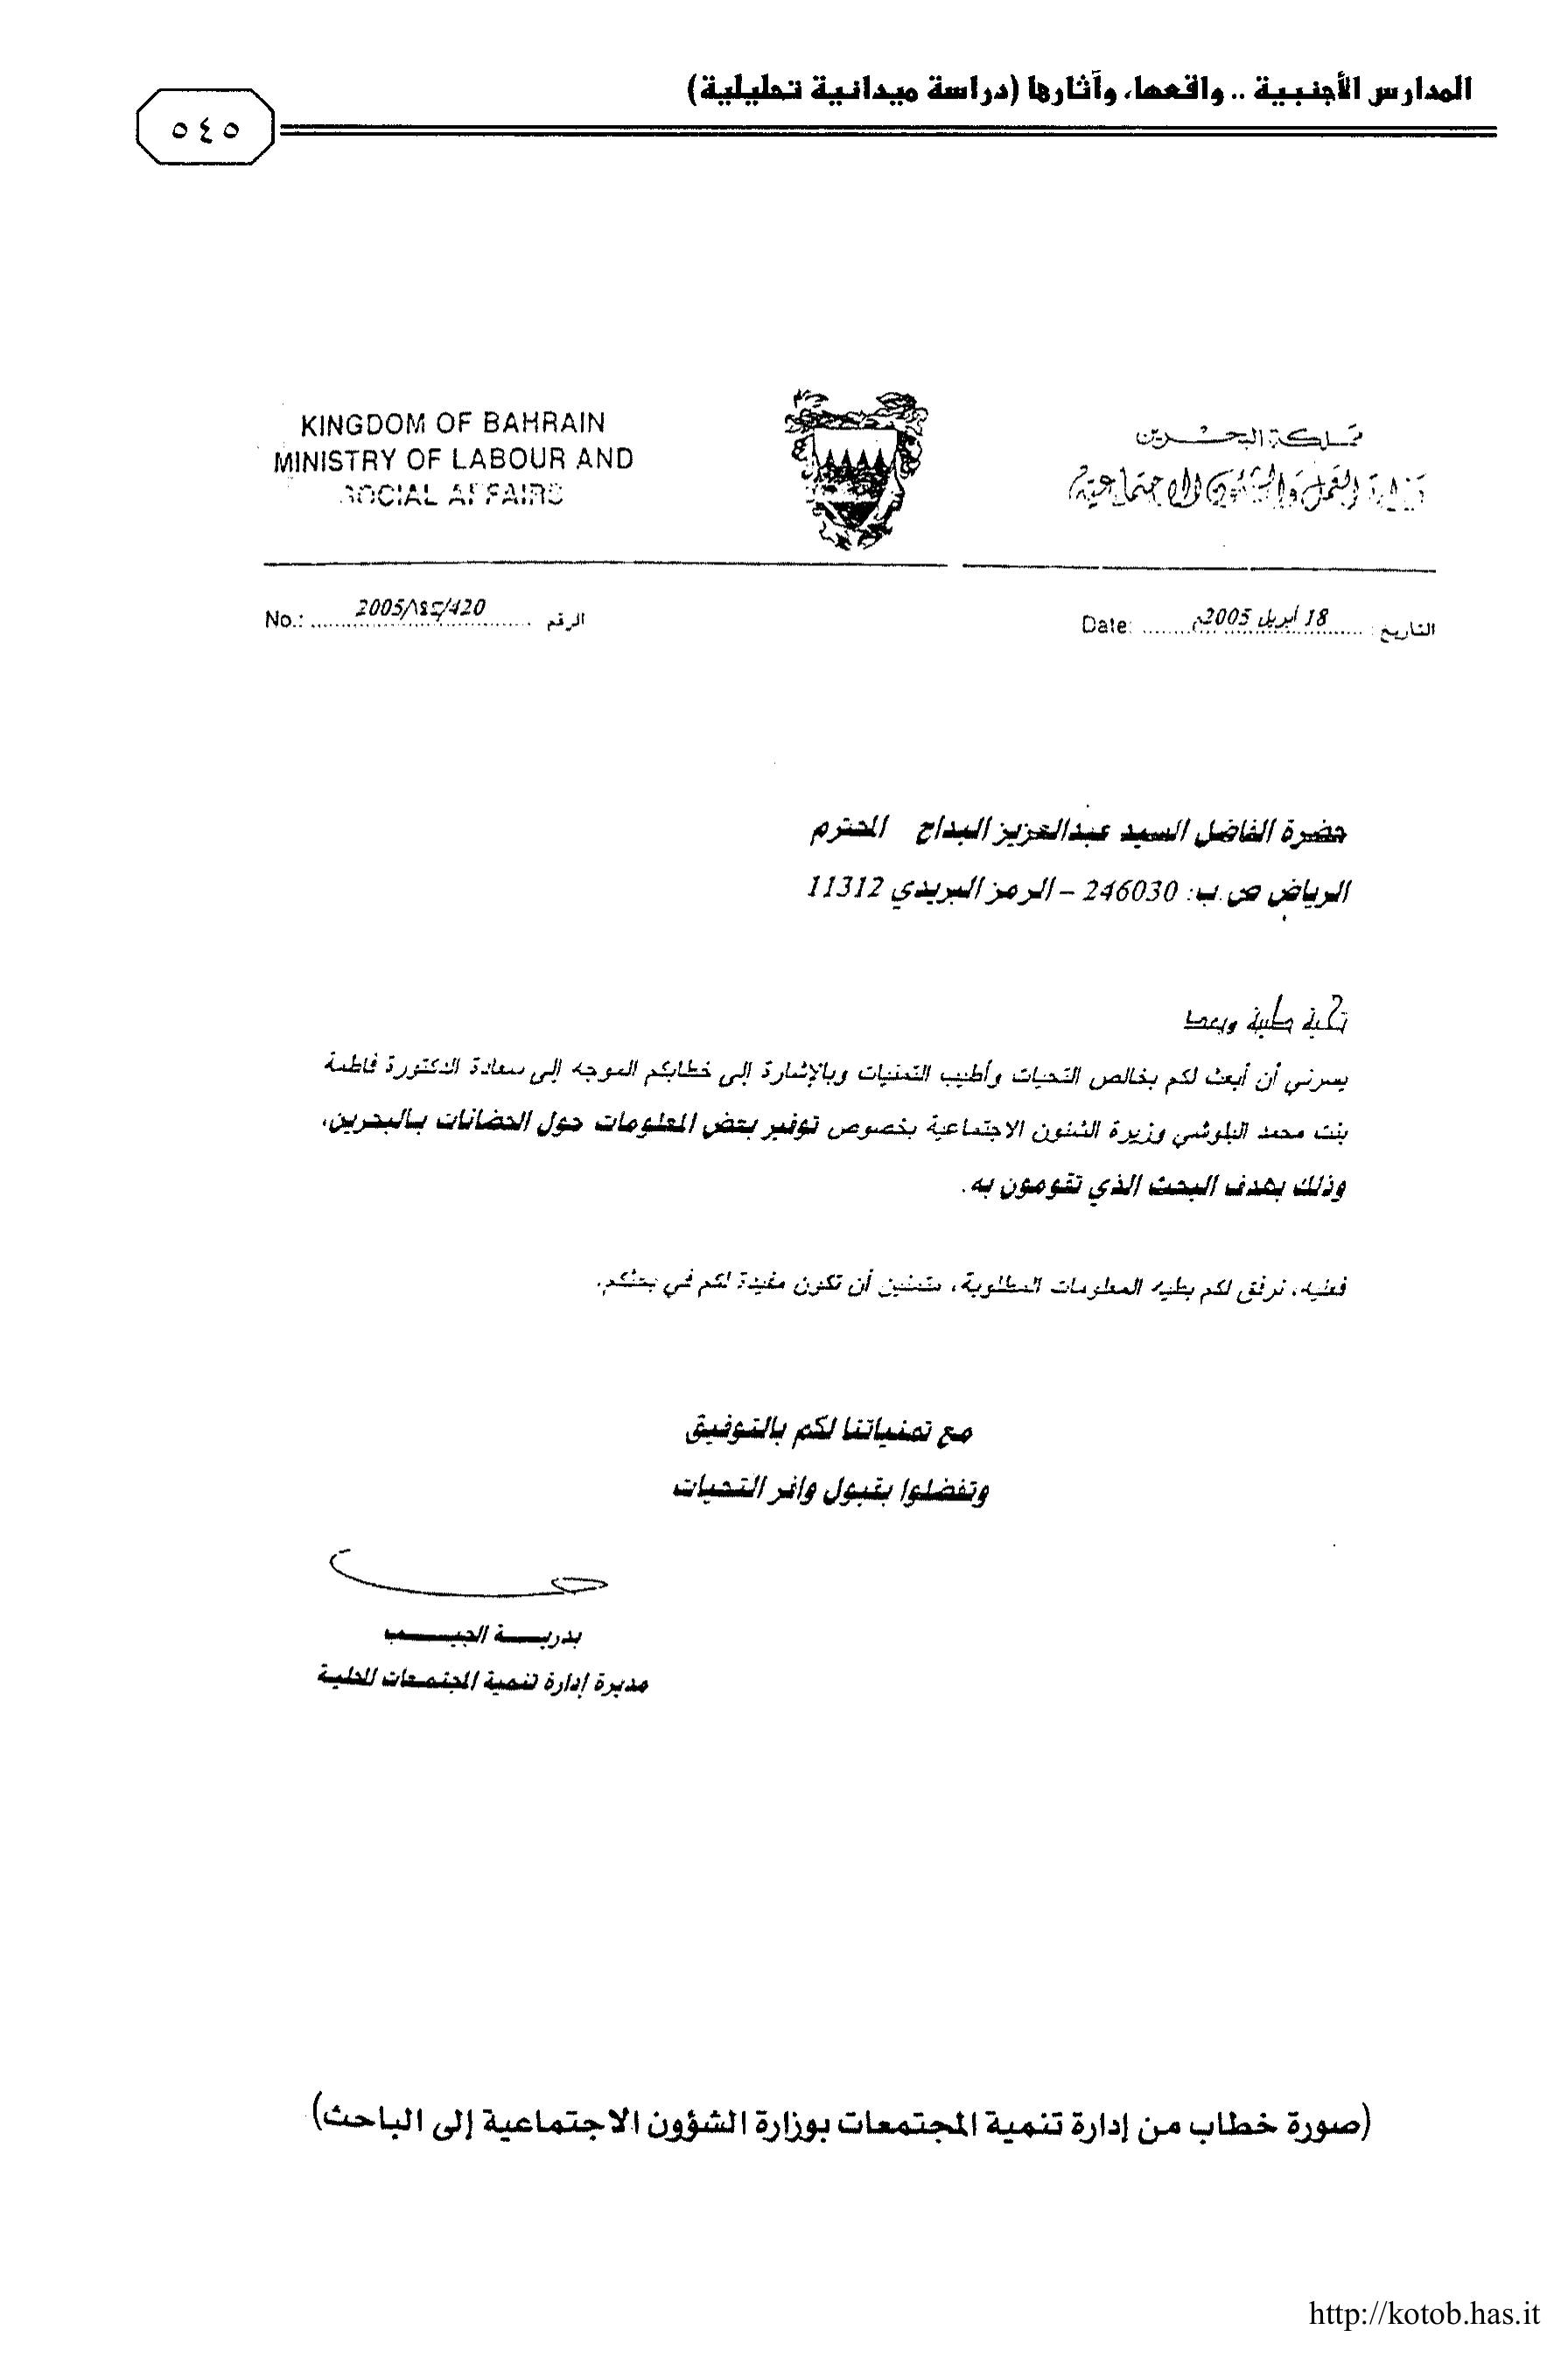 المدارس الأجنبية .. واقعها، وآثارها (دراسة ميدانية تحليلية)
٥٤٥
KINGDOM OF BAHRAIN
MINISTRY OF LABOUR AND
SOCIAL AFFAIRS
مملكة البحرين
وزارة العمل والشئون الاجتماعية
No.: الرقم
Date: 18 أبريل 2005م التاريخ
حضرة الفاضل السيد عبدالعزيز البداح المحترم
الرياض ص.ب: 246030 – الرمز البريدي 11312
تحية طيبة وبعد
يسرني أن أبعث لكم بخالص التحيات وأطيب التمنيات وبالإشارة إلى خطابكم الموجه إلى سعادة الدكتورة فاطمة
بنت محمد البلوشي وزيرة الشئون الاجتماعية بخصوص توفير بعض المعلومات حول الحضانات بالبحرين،
وذلك بهدف البحث الذي تقومون به.
فعليه، نرفق لكم بطيه المعلومات المطلوبة، متمنين أن تكون مفيدة لكم في بحثكم.
مع تمنياتنا لكم بالتوفيق
وتفضلوا بقبول وافر التحيات
بدرية الجيب
مديرة إدارة تنمية المجتمعات المحلية
(صورة خطاب من إدارة تنمية المجتمعات بوزارة الشؤون الاجتماعية إلى الباحث)
http://kotob.has.it